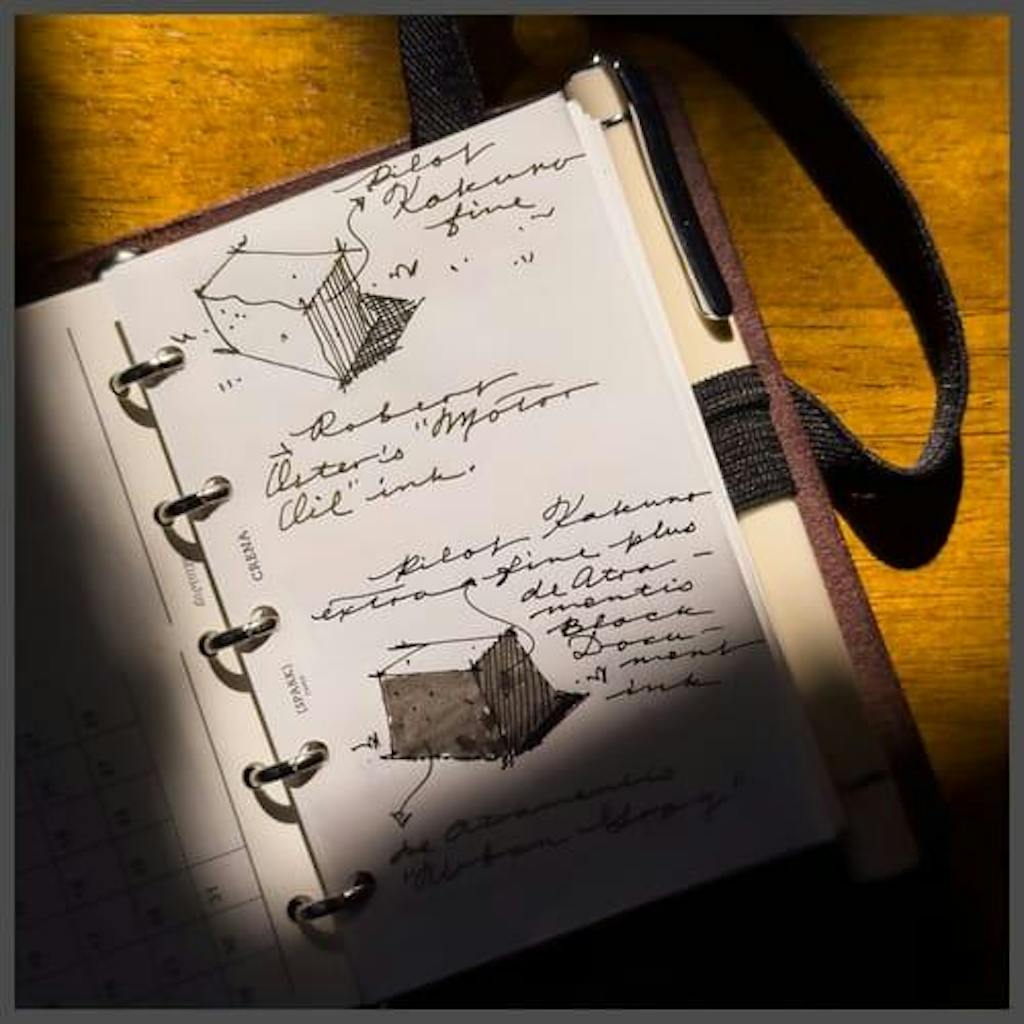 Pilot
Kakuno
fine
Robert
Öster's "Motor
Oil" ink.
Pilot Kakuno
extra fine plus
de Atra-
mentis
Black
Docu-
ment
ink
de Atramentis
"Urban Grey"
CREMA
(SPARK)
31